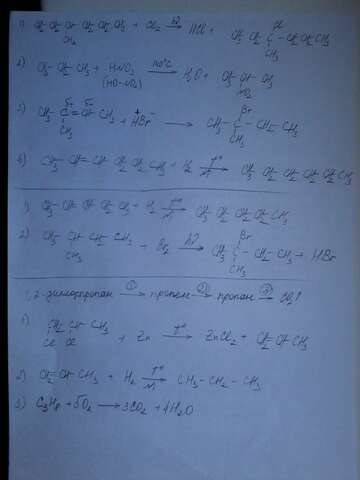 1) CH3 CH2 CH CH2 CH2 CH3 + Cl2 → HCl + CH3 CH2 C – CH2 CH2 CH3
CH3
Cl
CH3
2) CH3 – CH2 – CH3 + HNO3 140°C → H2O + CH3 CH CH3
(HO-NO2)
NO2
3) CH3 – C = CH – CH3 + HBr → CH3 – C – CH2 – CH3
δ+ δ-
+ -
CH3
Br
CH3
4) CH3 – CH = CH CH2 CH2 CH3 + H2 t° → CH3 CH2 CH2 CH2 CH2 CH3
Ni
1) CH3 – CH = CH CH2 CH3 + H2 t° → CH3 CH2 CH2 CH2 CH3
Ni
2) CH3 CH CH2 CH3 + Br2 → CH3 – C – CH2 – CH3 + HBr
CH3
Br
CH3
1,2-дихлорпропан ① → пропен ② → пропан ③ → CO2
1) CH2 – CH – CH3 + Zn t° → ZnCl2 + CH2 = CH CH3
Cl Cl
2) CH2 = CH – CH3 + H2 t° → CH3 – CH2 – CH3
Ni
3) C3H8 + 5O2 → 3CO2 + 4H2O